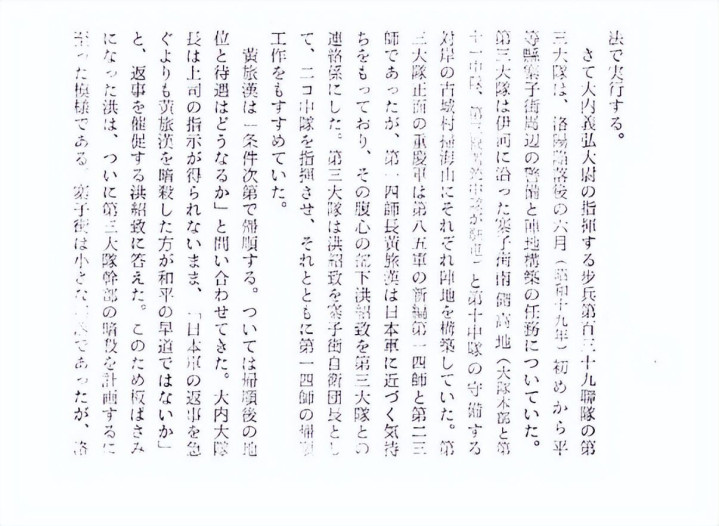 法で実行する。
さて大内義弘大尉の指揮する歩兵第百三十九聯隊の第
三大隊は、洛陽陥落後の六月（昭和十九年）初めから平
等縣寨子街周辺の警備と陣地構築の任務についていた。
第三大隊は伊河に沿った寨子街南側高地（大隊本部と第
十一中隊、第三機関銃中隊が駐屯）と第十中隊の守備する
対岸の古城村 海山にそれぞれ陣地を構築していた。第
三大隊正面の重慶軍は第八五軍の新編第一四師と第二三
師であったが、第一四師長黄旅漢は日本軍に近づく気持
ちをもっており、その腹心の部下洪紹致を第三大隊との
連絡係にした。第三大隊は洪紹致を寨子街自衛団長とし
て、二コ中隊を指揮させ、それとともに第一四師の帰順
工作をもすすめていた。
黄旅漢は「条件次第で帰順する。ついては帰順後の地
位と待遇はどうなるか」と問い合わせてきた。大内大隊
長は上司の指示が得られないまま、「日本軍の返事を急
ぐよりも黄旅漢を暗殺した方が和平の早道ではないか」
と、返事を催促する洪紹致に答えた。このため板ばさみ
になった洪は、ついに第三大隊幹部の暗殺を計画するに
至った模様である。寨子街は小さな 落であったが、洛